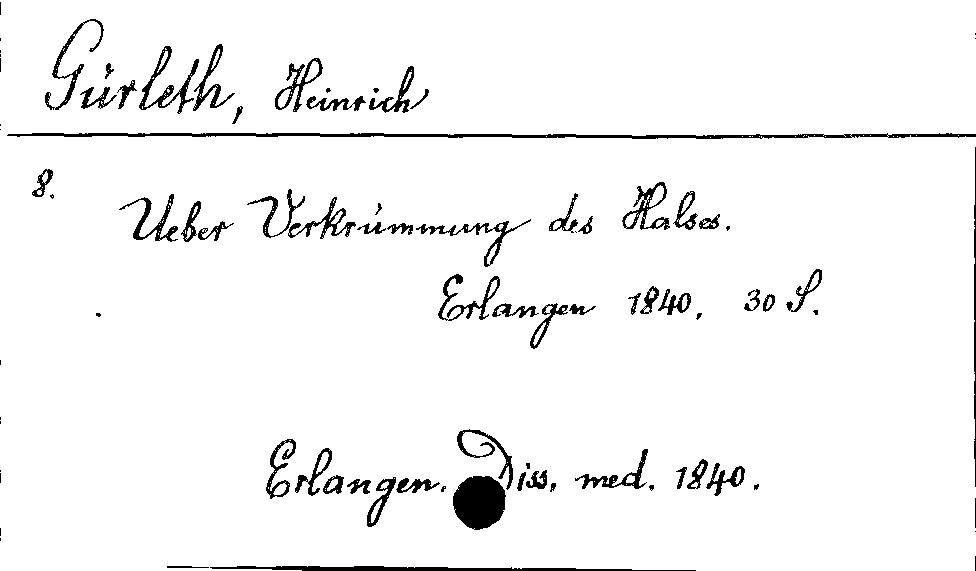 Gürleth, Heinrich
8.
Ueber Verkrümmung des Halses.
Erlangen 1840. 30 S.
Erlangen. Diss. med. 1840.